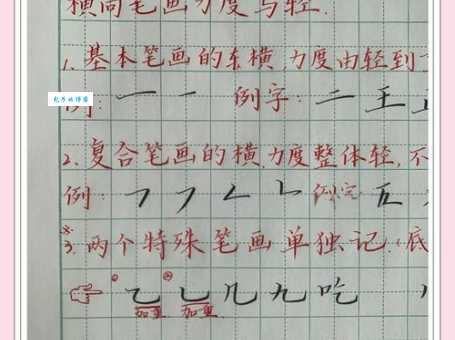 横向笔画力度与轻.
1.基本笔画的东横,力度由轻到
例: 一 一 例字: 二 王
2.复合笔画的横,力度整体轻,不
例: ㇕ ㇇ ㇄ 例字 五
※
3.两个特殊笔画单独记.(底
乙 乚 几 九 吃
加重 加重